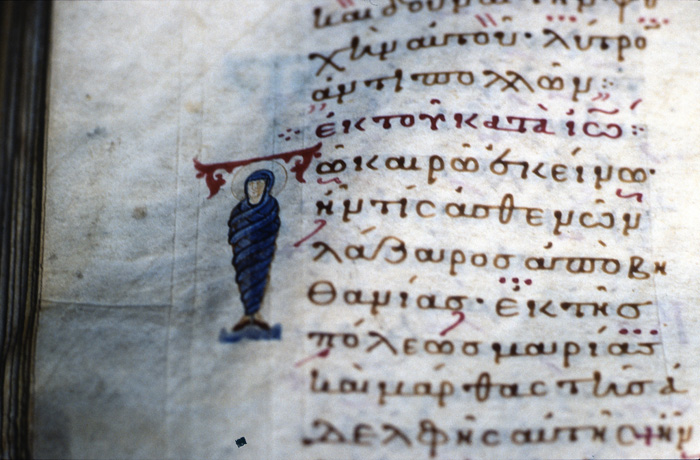 καὶ δοῦναι τὴν ψυ
χὴν αὐτοῦ· λύτρο
ἀντὶ πολλῶν:
ἐκ τοῦ κατὰ ἰω:
Τῶ καιρῶ ἐκείνω·
ἦν τίς ἀσθενῶν
λάζαρος ἀπὸ βη
θανίας· ἐκ τῆς
πόλεως μαρίας
καὶ μάρθας τῆς ἀ
δελφῆς αὐτῆς· ἦν